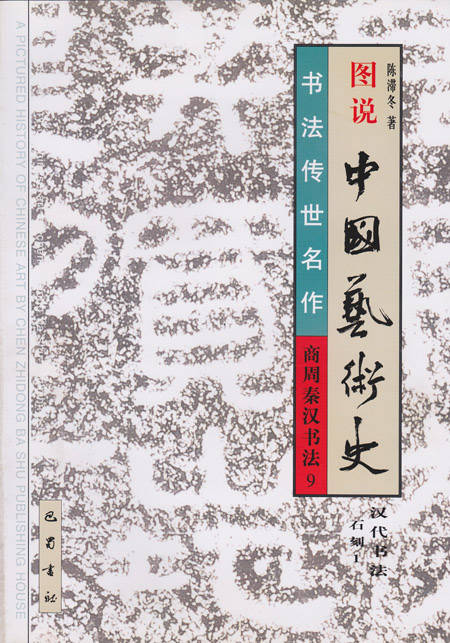 陈滞冬 著
图说
中國藝術史
书法传世名作
商周秦汉书法9
汉代书法
石刻1
巴蜀書社
A PICTURED HISTORY OF CHINESE ART BY CHEN ZHIDONG BA SHU PUBLISHING HOUSE